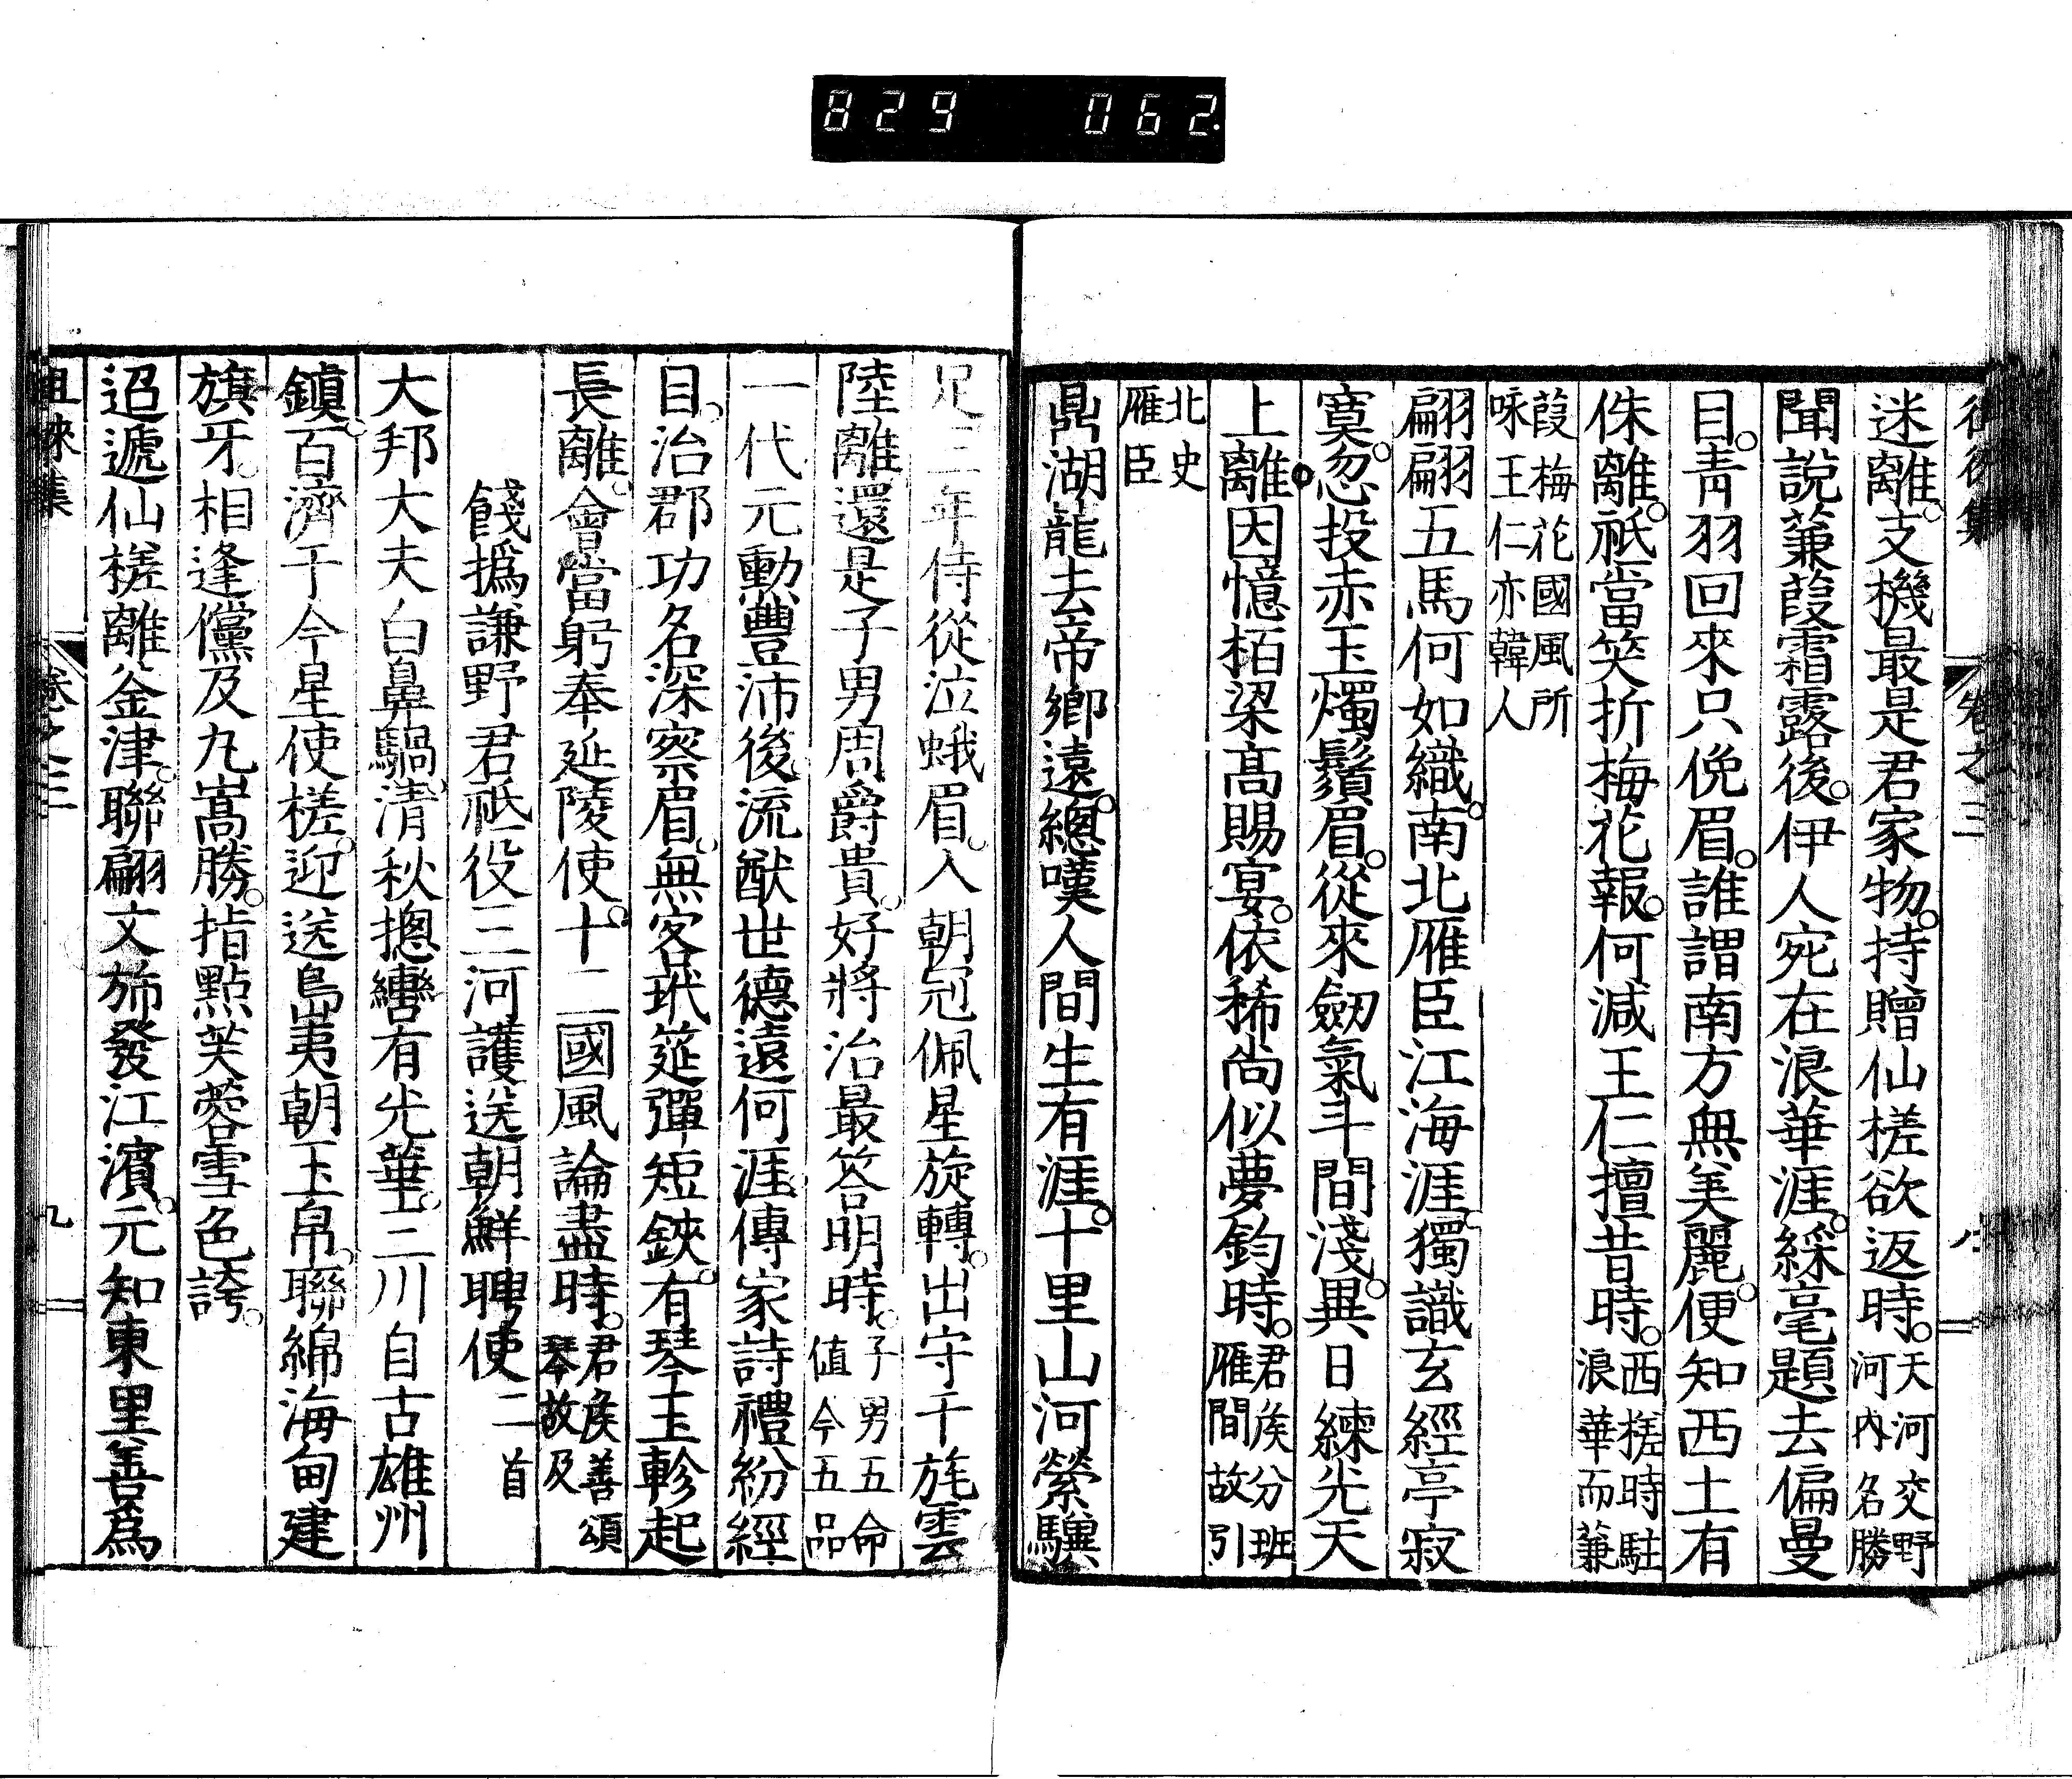 829 062
卷之三
八
迷離支機最是君家物持贈仙槎欲返時天河交野河內名勝
聞說蒹葭霜露後伊人宛在浪華涯綵毫題去偏曼
目青羽回來只俛眉誰謂南方無美麗便知西土有
侏離祇當笑折梅花報何減王仁擅昔時西槎時駐浪華而蒹
葭梅花國風所咏王仁亦韓人
翩翩五馬何如織南北雁臣江海涯獨識玄經亭寂
寞忽投赤玉燭鬚眉從來劒氣斗間淺異日練光天
上離因憶栢梁高賜宴依稀尚似夢鈞時君侯分班雁間故引
北史雁臣
鼎湖龍去帝鄉遠總嘆人間生有涯十里山河縈驥
足三年侍從泣蛾眉入朝冠佩星旋轉出守千旄雲
陸離還是子男周爵貴好將治最答明時子男五命値今五品
一代元勳豐沛後流猷世德遠何涯傳家詩禮紛經
目治郡功名深察眉無客玳筵彈短鋏有琴玉軫起
長離會當躬奉延陵使十二國風論盡時君侯善頌琴故及
餞撝謙野君祇役三河護送朝鮮聘使二首
大邦大夫白鼻騧清秋摠轡有光華三川自古雄州
鎮百濟于今星使槎迎送島夷朝玉帛聯綿海甸建
旗牙相逢儻及九嵩勝指點芙蓉雪色誇
迢遞仙槎離釜津聯翩文旆發江濱元知東里善爲
徂徠集
卷之三
九